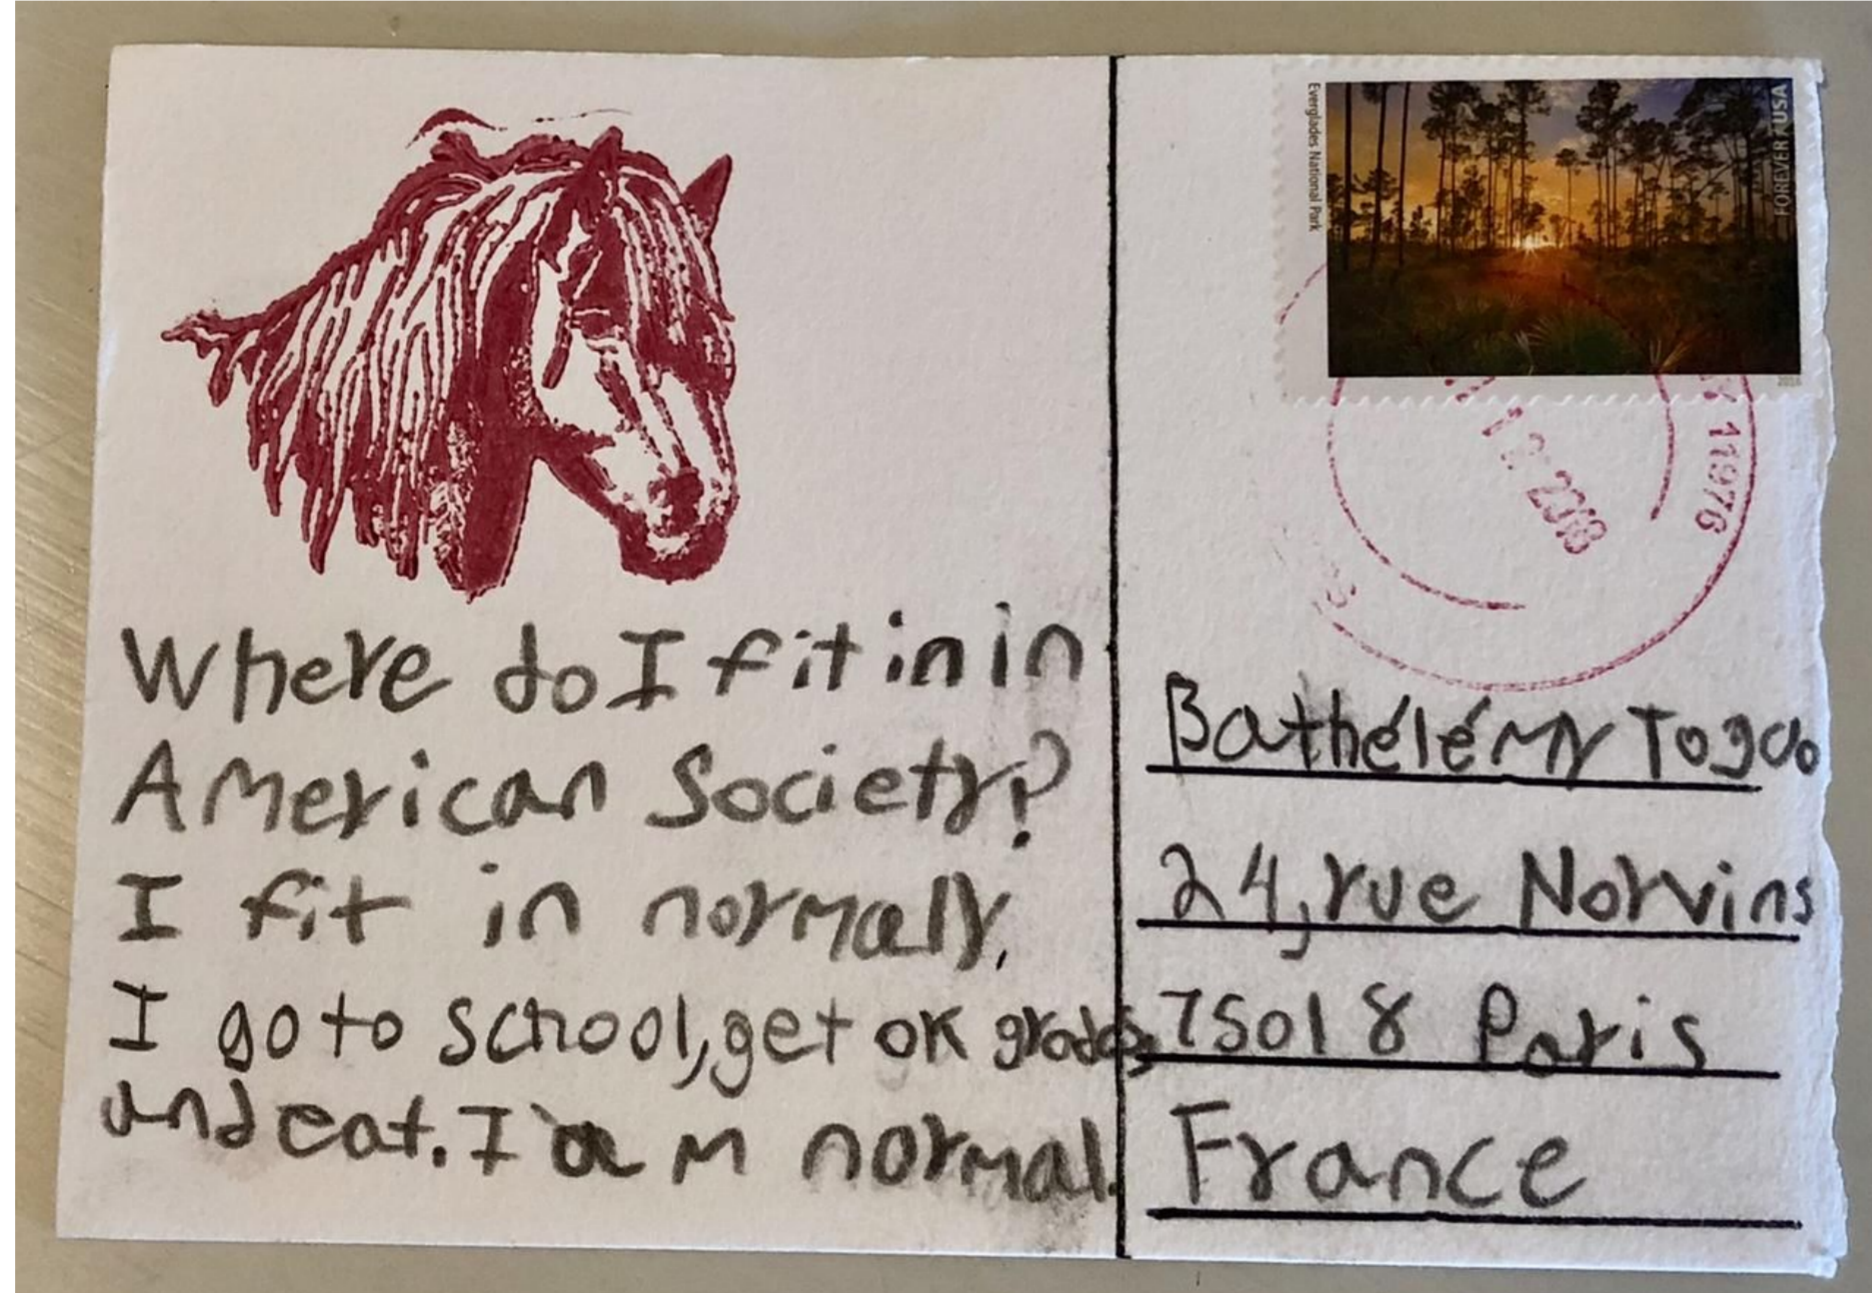 Where do I fit in in
American Society?
I fit in normaly.
I go to school, get ok grades,
and eat. I am normal.
Everglades National Park
FOREVER / USA
2016
11976
2018
Bathélémy Toguo
24, rue Norvins
75018 Paris
France